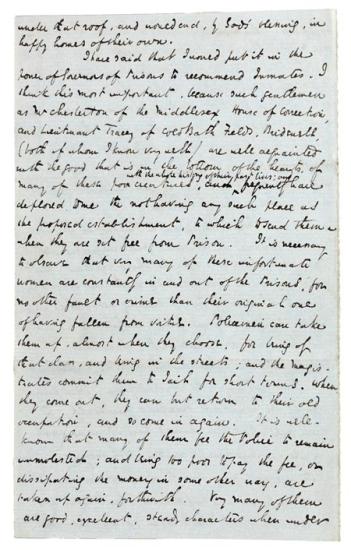 under that roof, and would end, by God's blessing, in
happy homes of their own.
I have said that I would put it in the
power of Governors of Prisons to recommend Inmates. I
think this most important, because such gentlemen
as Mr Chesterton of the Middlesex House of Correction,
and Lieutenant Tracey of Cold Bath Fields, Bridewell,
(both of whom I know very well) are well acquainted
with the good that is in the bottom of the hearts, of
with the whole history of their past lives; and
many of these poor creatures, and frequently have
deplored to me the not having any such place as
the proposed establishment, to which to send them –
when they are set free from Prison. It is necessary
to observe that very many of these unfortunate
women are constantly in and out of the Prisons, for
no other fault or crime than their original one
of having fallen from virtue. Policemen can take
them up, almost when they choose, for being of
that class, and being in the streets; and the magis-
trates commit them to Jail for short terms. When
they come out, they can but return to their old
occupation, and so come in again. It is well-
known that many of them fee the Police to remain
unmolested; and being too poor to pay the fee, or
dissipating the money in some other way, are
taken up again, forthwith. Very many of them
are good, excellent, steady characters when under